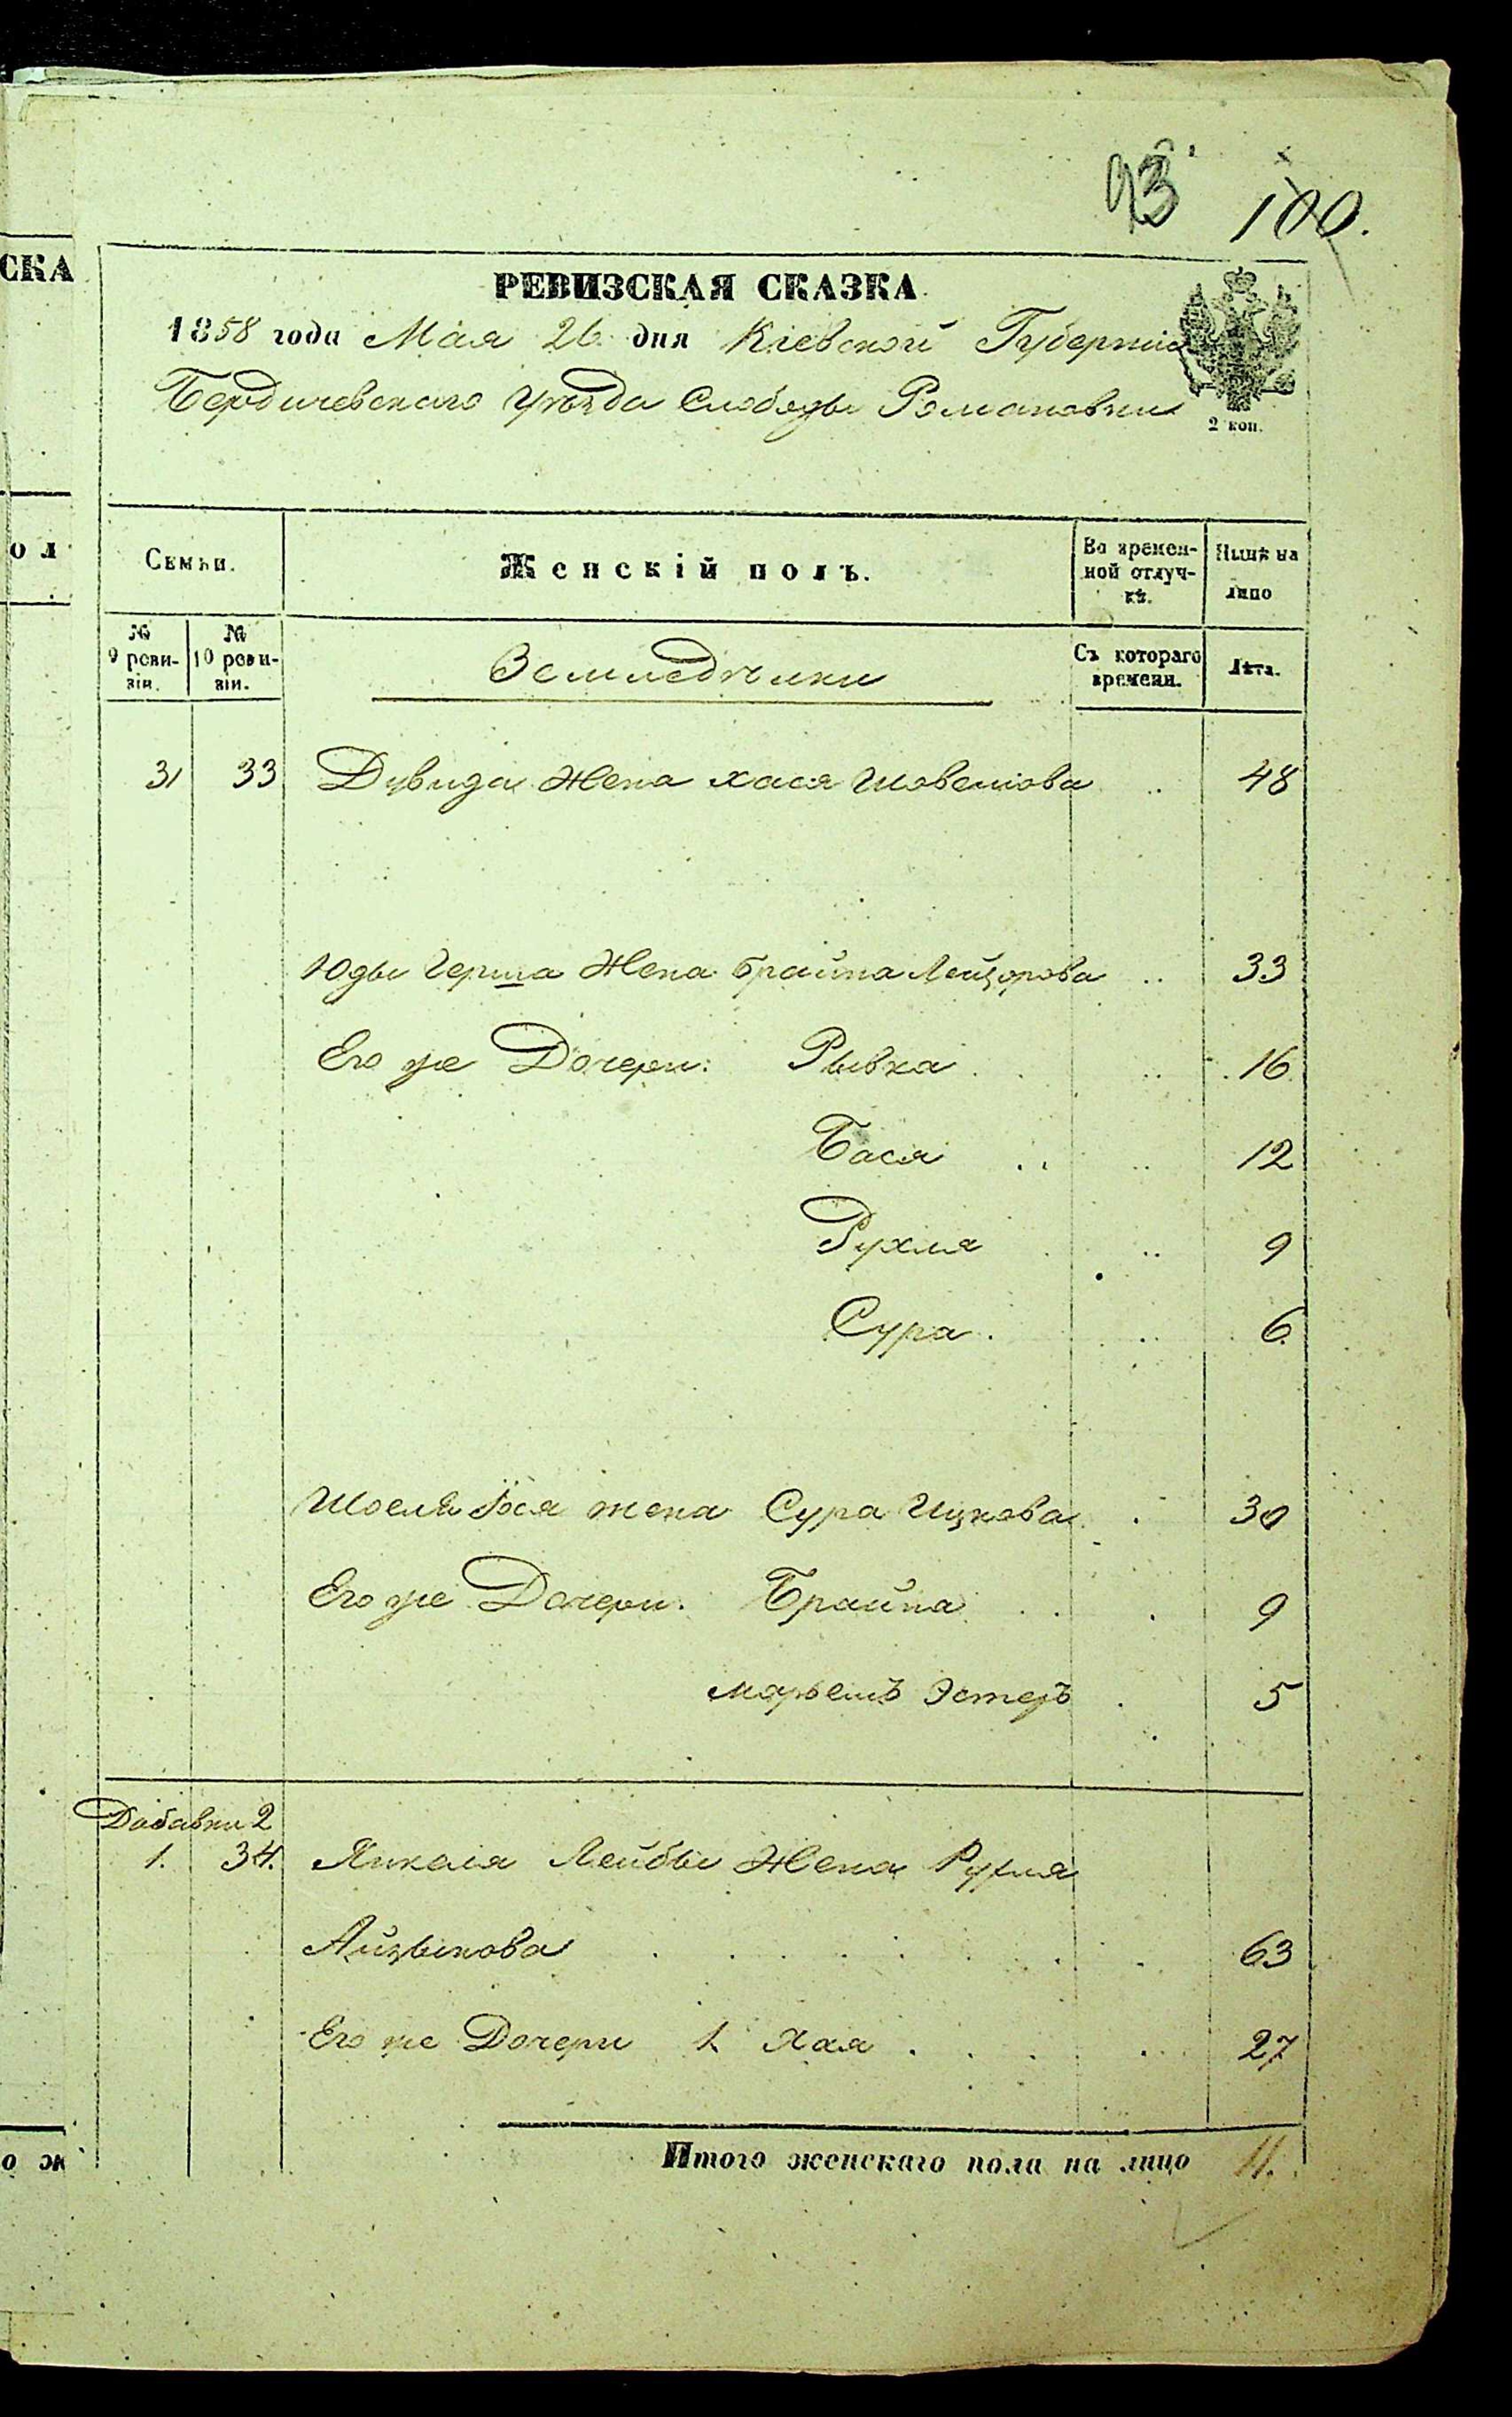 СКА
о л
о ж
93 100.
РЕВИЗСКАЯ СКАЗКА
1858 года Мая 26 дня Кіевской Губерніи
Бердичевскаго Уѣзда Слободы Романовки
2 коп.
Семьи. Женскій полъ. Во времен- Нынѣ на
ной отлуч- лицо
кѣ.
№ №
9 реви- 10 реви- Земледѣльцы Съ котораго Лѣта.
зіи. зіи. времени.
31 33 Дувида Жена Хася Шовелiова 48
Юды Герша Жена Брайна Лейзорова 33
Его же Дочери: Рывка 16
Бася 12
Рухля 9
Сура 6
Шоеля Іося жена Сура Ицкова 30
Его же Дочери: Брайна 9
Марьемъ Эстеръ 5
Добавки 2
1. 34. Янкеля Лейбы Жена Рухля
Айзыкова 63
Его же Дочери 1. Хая 27
Итого женскаго пола на лицо 11.